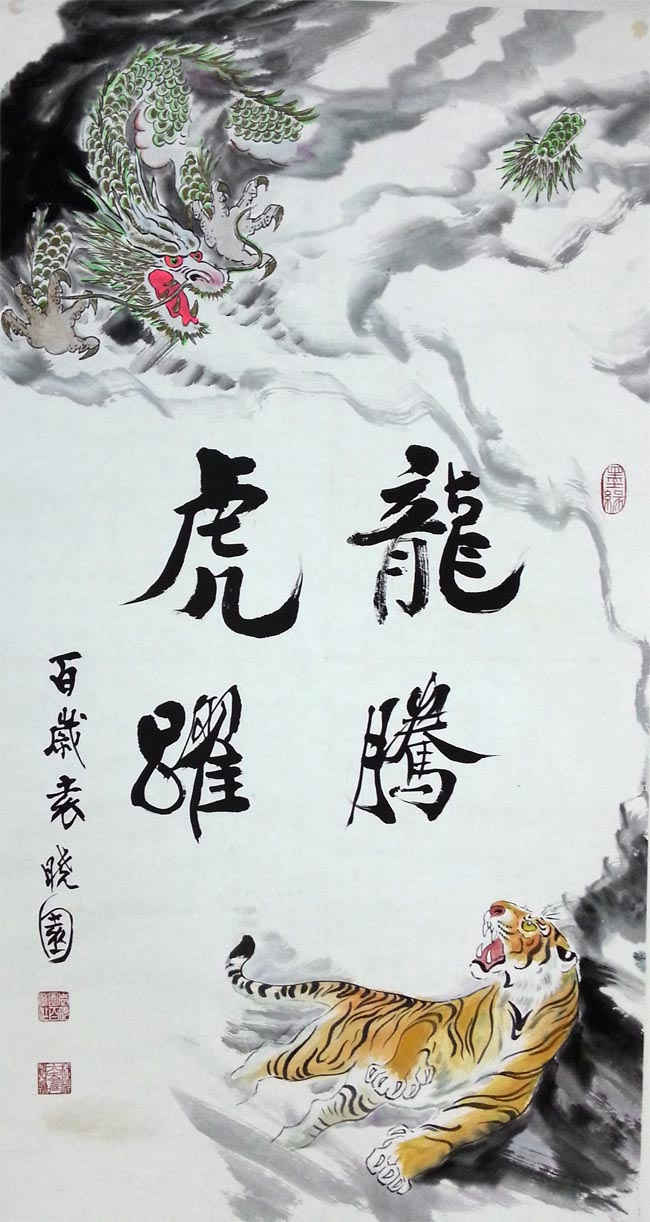 龍騰
虎躍
百歲袁曉園
墨緣